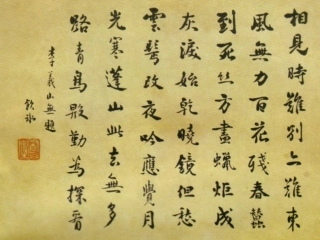 相見時難別亦難東
風無力百花殘春蠶
到死丝方盡蠟炬成
灰淚始乾曉鏡但愁
雲鬢改夜吟應覺月
光寒蓬山此去無多
路青鳥殷勤為探看
李義山無題